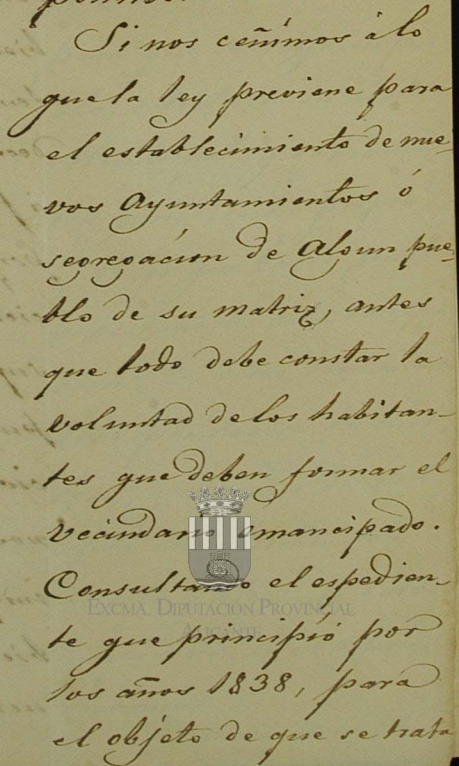 Si nos ceñimos á lo
que la ley previene para
el establecimiento de nue-
vos Ayuntamientos ó
segregacion de Algun pue-
blo de su matriz, antes
que todo debe constar la
voluntad de los habitan-
tes que deben formar el
vecindario emancipado.
Consultando el espedien-
te que principió por
los años 1838, para
el objeto de que se trata
EXCMA. DIPUTACIÓN PROVINCIAL
ALICANTE